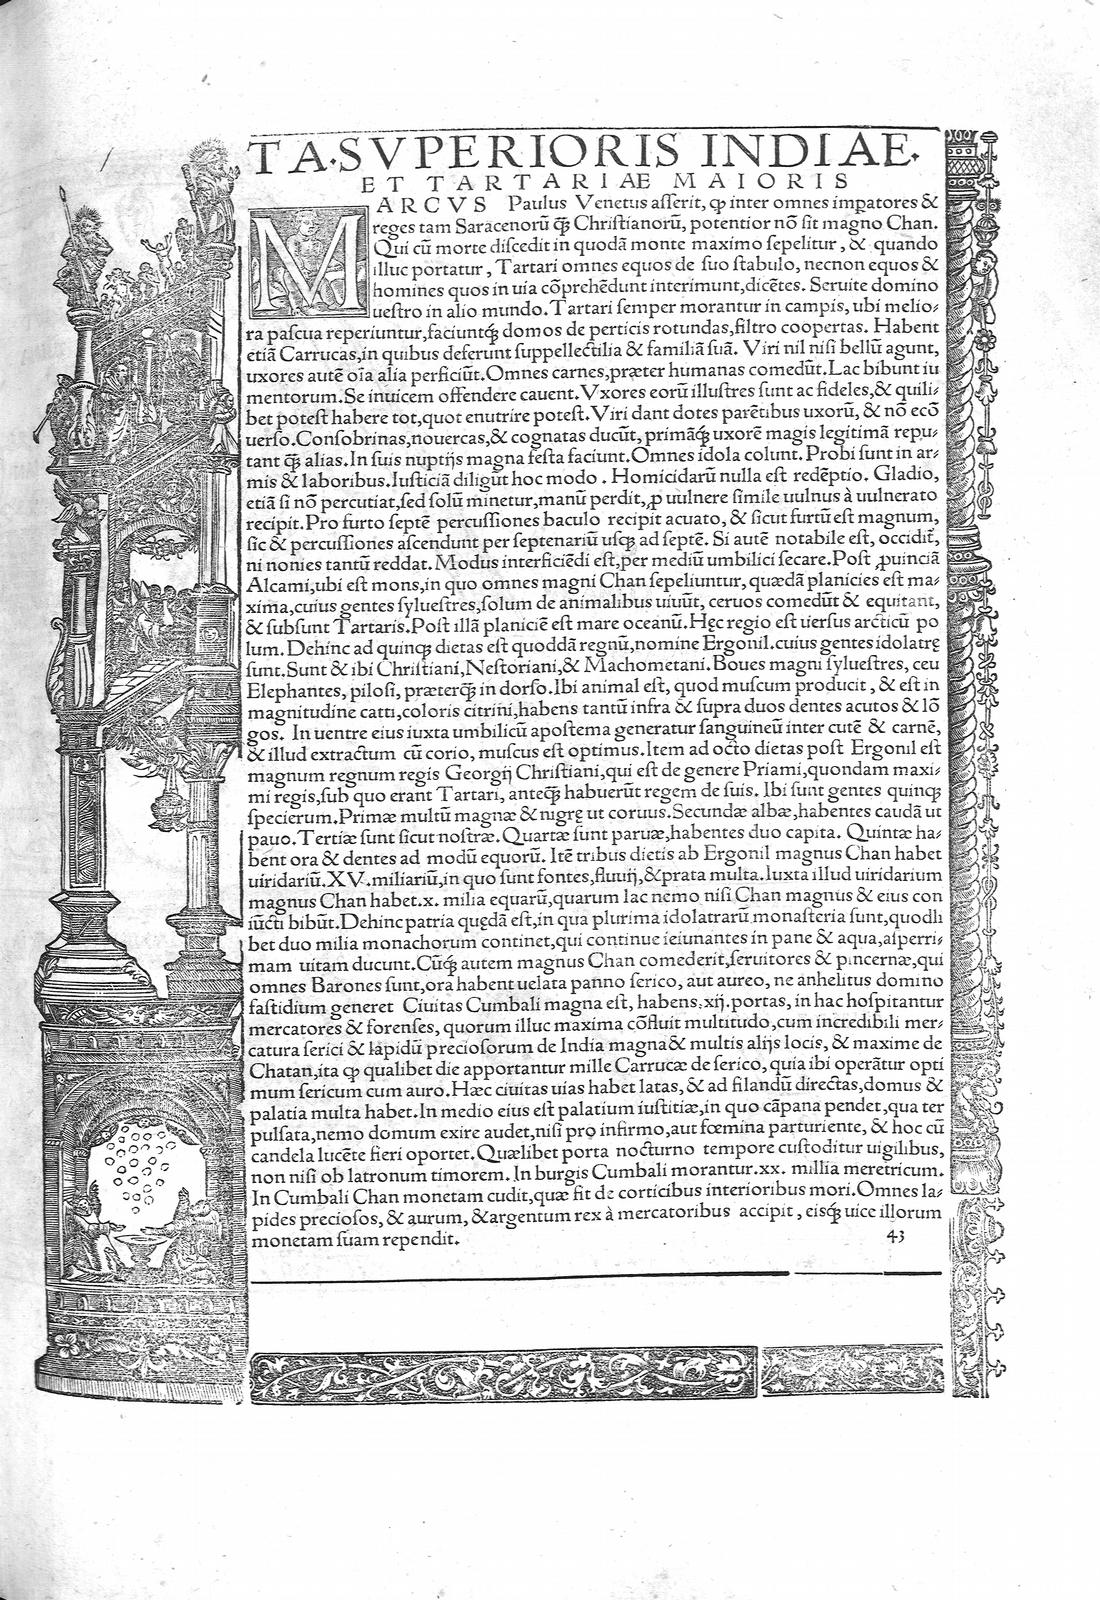 TA·SVPERIORIS INDIAE·
ET TARTARIAE MAIORIS
MARCVS Paulus Venetus aſſerit, ꝙ inter omnes impatores &
reges tam Saracenorũ ꝗ̃ Chriſtianorũ, potentior nõ ſit magno Chan.
Qui cũ morte diſcedit in quodã monte maximo ſepelitur, & quando
illuc portatur, Tartari omnes equos de ſuo ſtabulo, necnon equos &
homines quos in uia cõprehẽdunt interimunt, dicẽtes. Seruite domino
ueſtro in alio mundo. Tartari ſemper morantur in campis, ubi melio⸗
ra paſcua reperiuntur, faciuntꝗ́ domos de perticis rotundas, filtro coopertas. Habent
etiã Carrucas, in quibus deferunt ſuppellectilia & familiã ſuã. Viri nil niſi bellũ agunt,
uxores autẽ oĩa alia perficiũt. Omnes carnes, præter humanas comedũt. Lac bibunt iu
mentorum. Se inuicem offendere cauent. Vxores eorũ illuſtres ſunt ac fideles, & quili⸗
bet poteſt habere tot, quot enutrire poteſt. Viri dant dotes parẽtibus uxorũ, & nõ ecõ
uerſo. Conſobrinas, nouercas, & cognatas ducũt, primãꝗ́ uxorẽ magis legitimã repu⸗
tant ꝗ̃ alias. In ſuis nuptijs magna feſta faciunt. Omnes idola colunt. Probi ſunt in ar⸗
mis & laboribus. Iuſticiã diligũt hoc modo. Homicidarũ nulla eſt redẽptio. Gladio,
etiã ſi nõ percutiat, ſed ſolũ minetur, manũ perdit, ꝓ uulnere ſimile uulnus à uulnerato
recipit. Pro furto ſeptẽ percuſſiones baculo recipit acuato, & ſicut furtũ eſt magnum,
ſic & percuſſiones aſcendunt per ſeptenariũ uſꝗ ad ſeptẽ. Si autẽ notabile eſt, occidit̃,
ni nonies tantũ reddat. Modus interficiẽdi eſt, per mediũ umbilici ſecare. Poſt ꝓuinciã
Alcami, ubi eſt mons, in quo omnes magni Chan ſepeliuntur, quædã planicies eſt ma⸗
xima, cuius gentes ſylueſtres, ſolum de animalibus uiuũt, ceruos comedũt & equitant,
& ſubſunt Tartaris. Poſt illã planiciẽ eſt mare oceanũ. Hęc regio eſt uerſus arcticũ po
lum. Dehinc ad quinꝗ dietas eſt quoddã regnũ, nomine Ergonil. cuius gentes idolatrę
ſunt. Sunt & ibi Chriſtiani, Neſtoriani, & Machometani. Boues magni ſylueſtres, ceu
Elephantes, piloſi, præterꝗ̃ in dorſo. Ibi animal eſt, quod muſcum producit, & eſt in
magnitudine catti, coloris citrini, habens tantũ infra & ſupra duos dentes acutos & lõ
gos. In uentre eius iuxta umbilicũ apoſtema generatur ſanguineũ inter cutẽ & carnẽ,
& illud extractum cũ corio, muſcus eſt optimus. Item ad octo dietas poſt Ergonil eſt
magnum regnum regis Georgij Chriſtiani, qui eſt de genere Priami, quondam maxi⸗
mi regis, ſub quo erant Tartari, anteꝗ̃ habuerũt regem de ſuis. Ibi ſunt gentes quinꝗ
ſpecierum. Primæ multũ magnæ & nigrę ut coruus. Secundæ albæ, habentes caudã ut
pauo. Tertiæ ſunt ſicut noſtræ. Quartæ ſunt paruæ, habentes duo capita. Quintæ ha⸗
bent ora & dentes ad modũ equorũ. Itẽ tribus dietis ab Ergonil magnus Chan habet
uiridariũ. XV. miliariũ, in quo ſunt fontes, fluuij, & prata multa. Iuxta illud uiridarium
magnus Chan habet. x. milia equarũ, quarum lac nemo niſi Chan magnus & eius con
iũcti bibũt. Dehinc patria quędã eſt, in qua plurima idolatrarũ monaſteria ſunt, quodli
bet duo milia monachorum continet, qui continue ieiunantes in pane & aqua, aſperri⸗
mam uitam ducunt. Cũꝗ́ autem magnus Chan comederit, ſeruitores & pincernæ, qui
omnes Barones ſunt, ora habent uelata panno ſerico, aut aureo, ne anhelitus domino
faſtidium generet Ciuitas Cumbali magna eſt, habens, xij. portas, in hac hoſpitantur
mercatores & forenſes, quorum illuc maxima cõfluit multitudo, cum incredibili mer⸗
catura ſerici & lapidũ precioſorum de India magna & multis alijs locis, & maxime de
Chatan, ita ꝙ qualibet die apportantur mille Carrucæ de ſerico, quia ibi operãtur opti
mum ſericum cum auro. Hæc ciuitas uias habet latas, & ad filandũ directas, domus &
palatia multa habet. In medio eius eſt palatium iuſtitiæ, in quo cãpana pendet, qua ter
pulſata, nemo domum exire audet, niſi pro infirmo, aut fœmina parturiente, & hoc cũ
candela lucẽte fieri oportet. Quælibet porta nocturno tempore cuſtoditur uigilibus,
non niſi ob latronum timorem. In burgis Cumbali morantur. xx. millia meretricum.
In Cumbali Chan monetam cudit, quæ fit de corticibus interioribus mori. Omnes la⸗
pides precioſos, & aurum, & argentum rex à mercatoribus accipit, eiſꝗ́ uice illorum
monetam ſuam rependit.
43